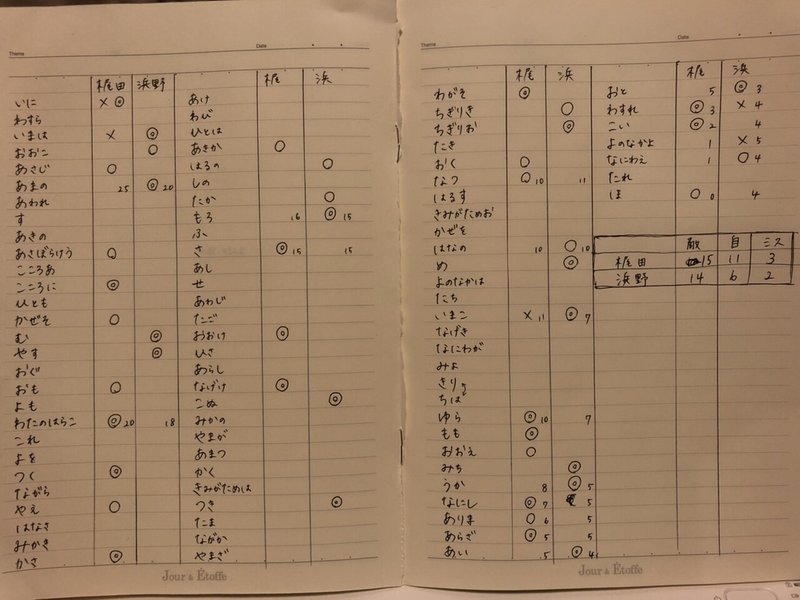 Theme Date
梶田 浜野 梶 浜
いに × ◎ あけ
わすら わび
いまは × ◎ ひとは
おおこ ○ あきか ○
あさじ ○ はるの ○
あまの 25 ◎ 20 しの
あわれ たか ○
す もろ 16 ◎ 15
あきの ふ
あさぼらけう ○ さ ◎ 15 15
こころあ あし
こころに ◎ せ
ひとも あわじ
かぜそ ○ たご
む ◎ おおけ ◎
やす ◎ ひさ
おぐ あらし
おも ○ なげけ ◎
よも こぬ ◎
わたのはらこ ◎ 20 18 みかの
これ やまが
よを あまつ
つく ◎ かく
ながら きみがためは
やえ ○ つき ◎
はなさ たま
みかき ながか
かさ ◎ やまざ
Jour & Étoffe
Theme Date
梶 浜 梶 浜
わがそ ◎ おと 5 ◎ 3
ちぎりき ○ わすれ ◎ 3 × 4
ちぎりお ◎ こい ◎ 2 4
たき よのなかよ 1 × 5
おく ○ なにわえ 1 ○ 4
なつ ○ 10 11 たれ
はるす ほ ○ 0 4
きみがためお
かぜを
はなの 10 ○ 10
め ◎
よのなかは
たち
いまこ × 11 ◎ 7
なげき
なにわが
みよ
きりぎ
ちは
ゆら ◎ 10 7
もも ◎
おおえ ○
みち ◎
うか 8 ◎ 5
なにし ◎ 7 5
ありま ○ 6 5
あらざ ◎ 5 5
あい 5 ◎ 4
敵 自 ミス
梶田 15 11 3
浜野 14 6 2
Jour & Étoffe